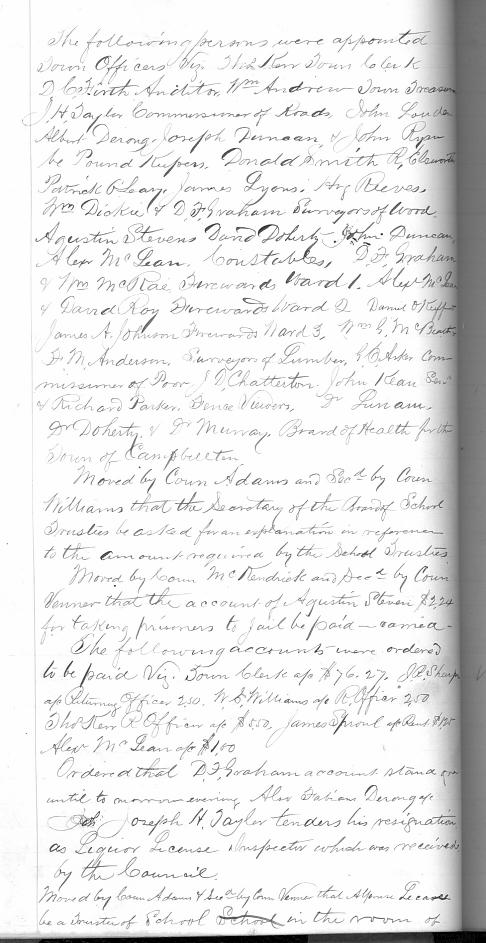 The following persons were appointed
Town Officers Viz. Thos Kerr Town Clerk
D. C. Firth Auditor, Wm Andrew Town Treasurer
J. H. Taylor Commissioner of Roads, John Louden
Albert Deronge, Joseph Duncan & John Ryan
be Pound Keepers, Donald Smith R,
Patrick O'Leary, James Lyons, Hy Reeves,
Wm Dickie & D. F Graham Surveyors of Wood
Agustin Stevens David Doherty John Duncan,
Alexr McLean, Constables, D. F Graham
& Wm McRae, Firewards Ward 1, Alexr McLean
& David Roy Firewards Ward 2 Daniel O'Keeffe
James A. Johnson Firewards Ward 3, Wm G. McBeath
F. M. Anderson, Surveyors of Lumber, Com-
missioner of Poor, J D Chatterton, John Kean Senr
& Richard Parker, Fence Viewers, Dr Lunam,
Dr Doherty & Dr Murray, Board of Health for the
Town of Campbellton
Moved by Coun Adams and Secd by Coun
Williams that the Secretary of the Board of School
Trusties be asked for an explanation in reference
to the amount required by the School Trusties
Moved by Coun McKendrick and Secd by Coun
Venner that the account of Agustin Steven $2.24
for taking prisoners to jail be paid — carried —
The following accounts were ordered
to be paid Viz. Town Clerk a/c $76.27. J. C. Sharp
a/c Returning Officer 2.50 W. S. Williams a/c R. Officer 2.50
Thos Kerr R. Officer a/c $5.50, James Sproul a/c Rent $1.25
Alexr McLean a/c $1.00
Ordered that D. F Graham account stand over
until to morrow evening Also Fabian Deronge a/c
Joseph H. Taylor tenders his resignation
as Liquor License Inspector which was received
by the Council.
Moved by Coun Adams & Secd by Coun Venner that Alphonse
be a Trustee of School School in the room of